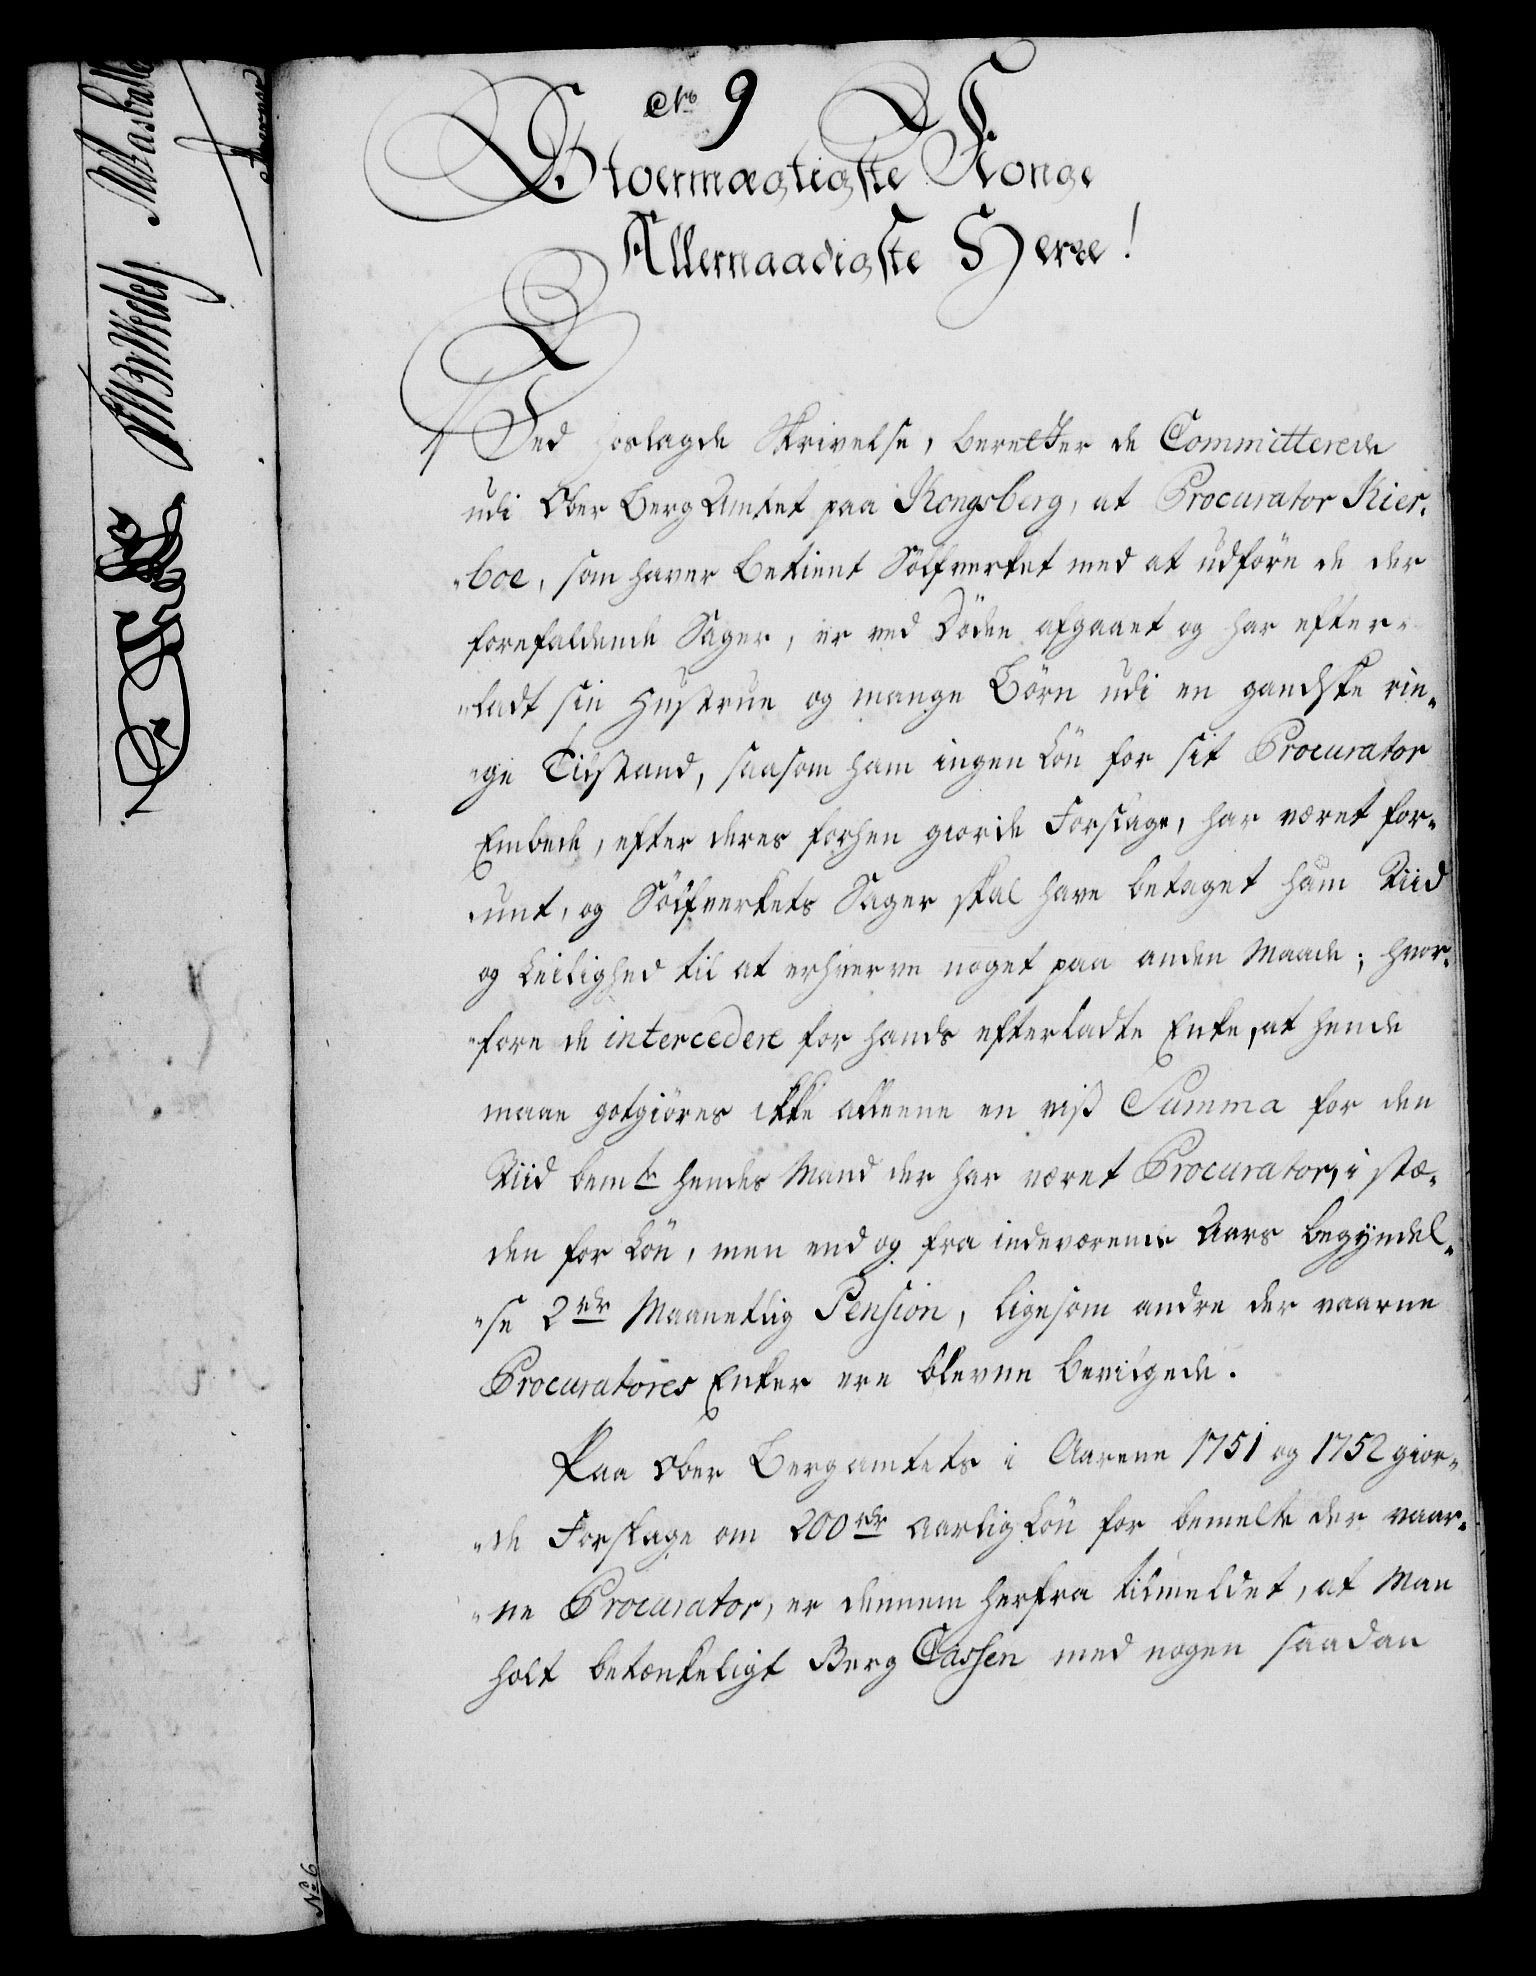 No 9
Stoermægtigste Konge
Allernaadigste Herre!
Ved hoslagde Skrivelse, beretter de Committerede
udi Ober Berg Amtet paa Kongsberg, at Procurator Kier-
boe, som haver betient Sölfverket med at udföre de der
forefaldende Sager, er ved Döden afgaaet og har efter-
ladt sin Hustrue og mange Börn udi en gandske rin-
ge Tilstand, saasom ham ingen Lön for sit Procurator
Embede, efter deres forhen giorde Forslage, har været for-
unt, og Sölfverkets Sager skal have betaget ham Tiid
og Leilighed til at erhverve noget paa anden Maade; hvor-
fore de intercedere for hands efterladte Enke, at hende
maae gotgiöres ikke alleene en viss Summa for den
Tiid bemte hendes Mand der har været Procurator, i stæ-
den for Lön, men end og fra indeværende Aars begyndel-
se 2 rdr Maanetlig Pension, ligesom andre der vaarne
Procuratores Enker ere blevne bevilgede.
Paa Ober Bergamtets i Aarene 1751 og 1752 gior-
de Forslage om 200 rdr aarlig Lön for bemelte der vaar-
ne Procurator, er dennem herfra tilmeldet, at Man
holt betænkeligt Berg Cassen med nogen saadan
No 6